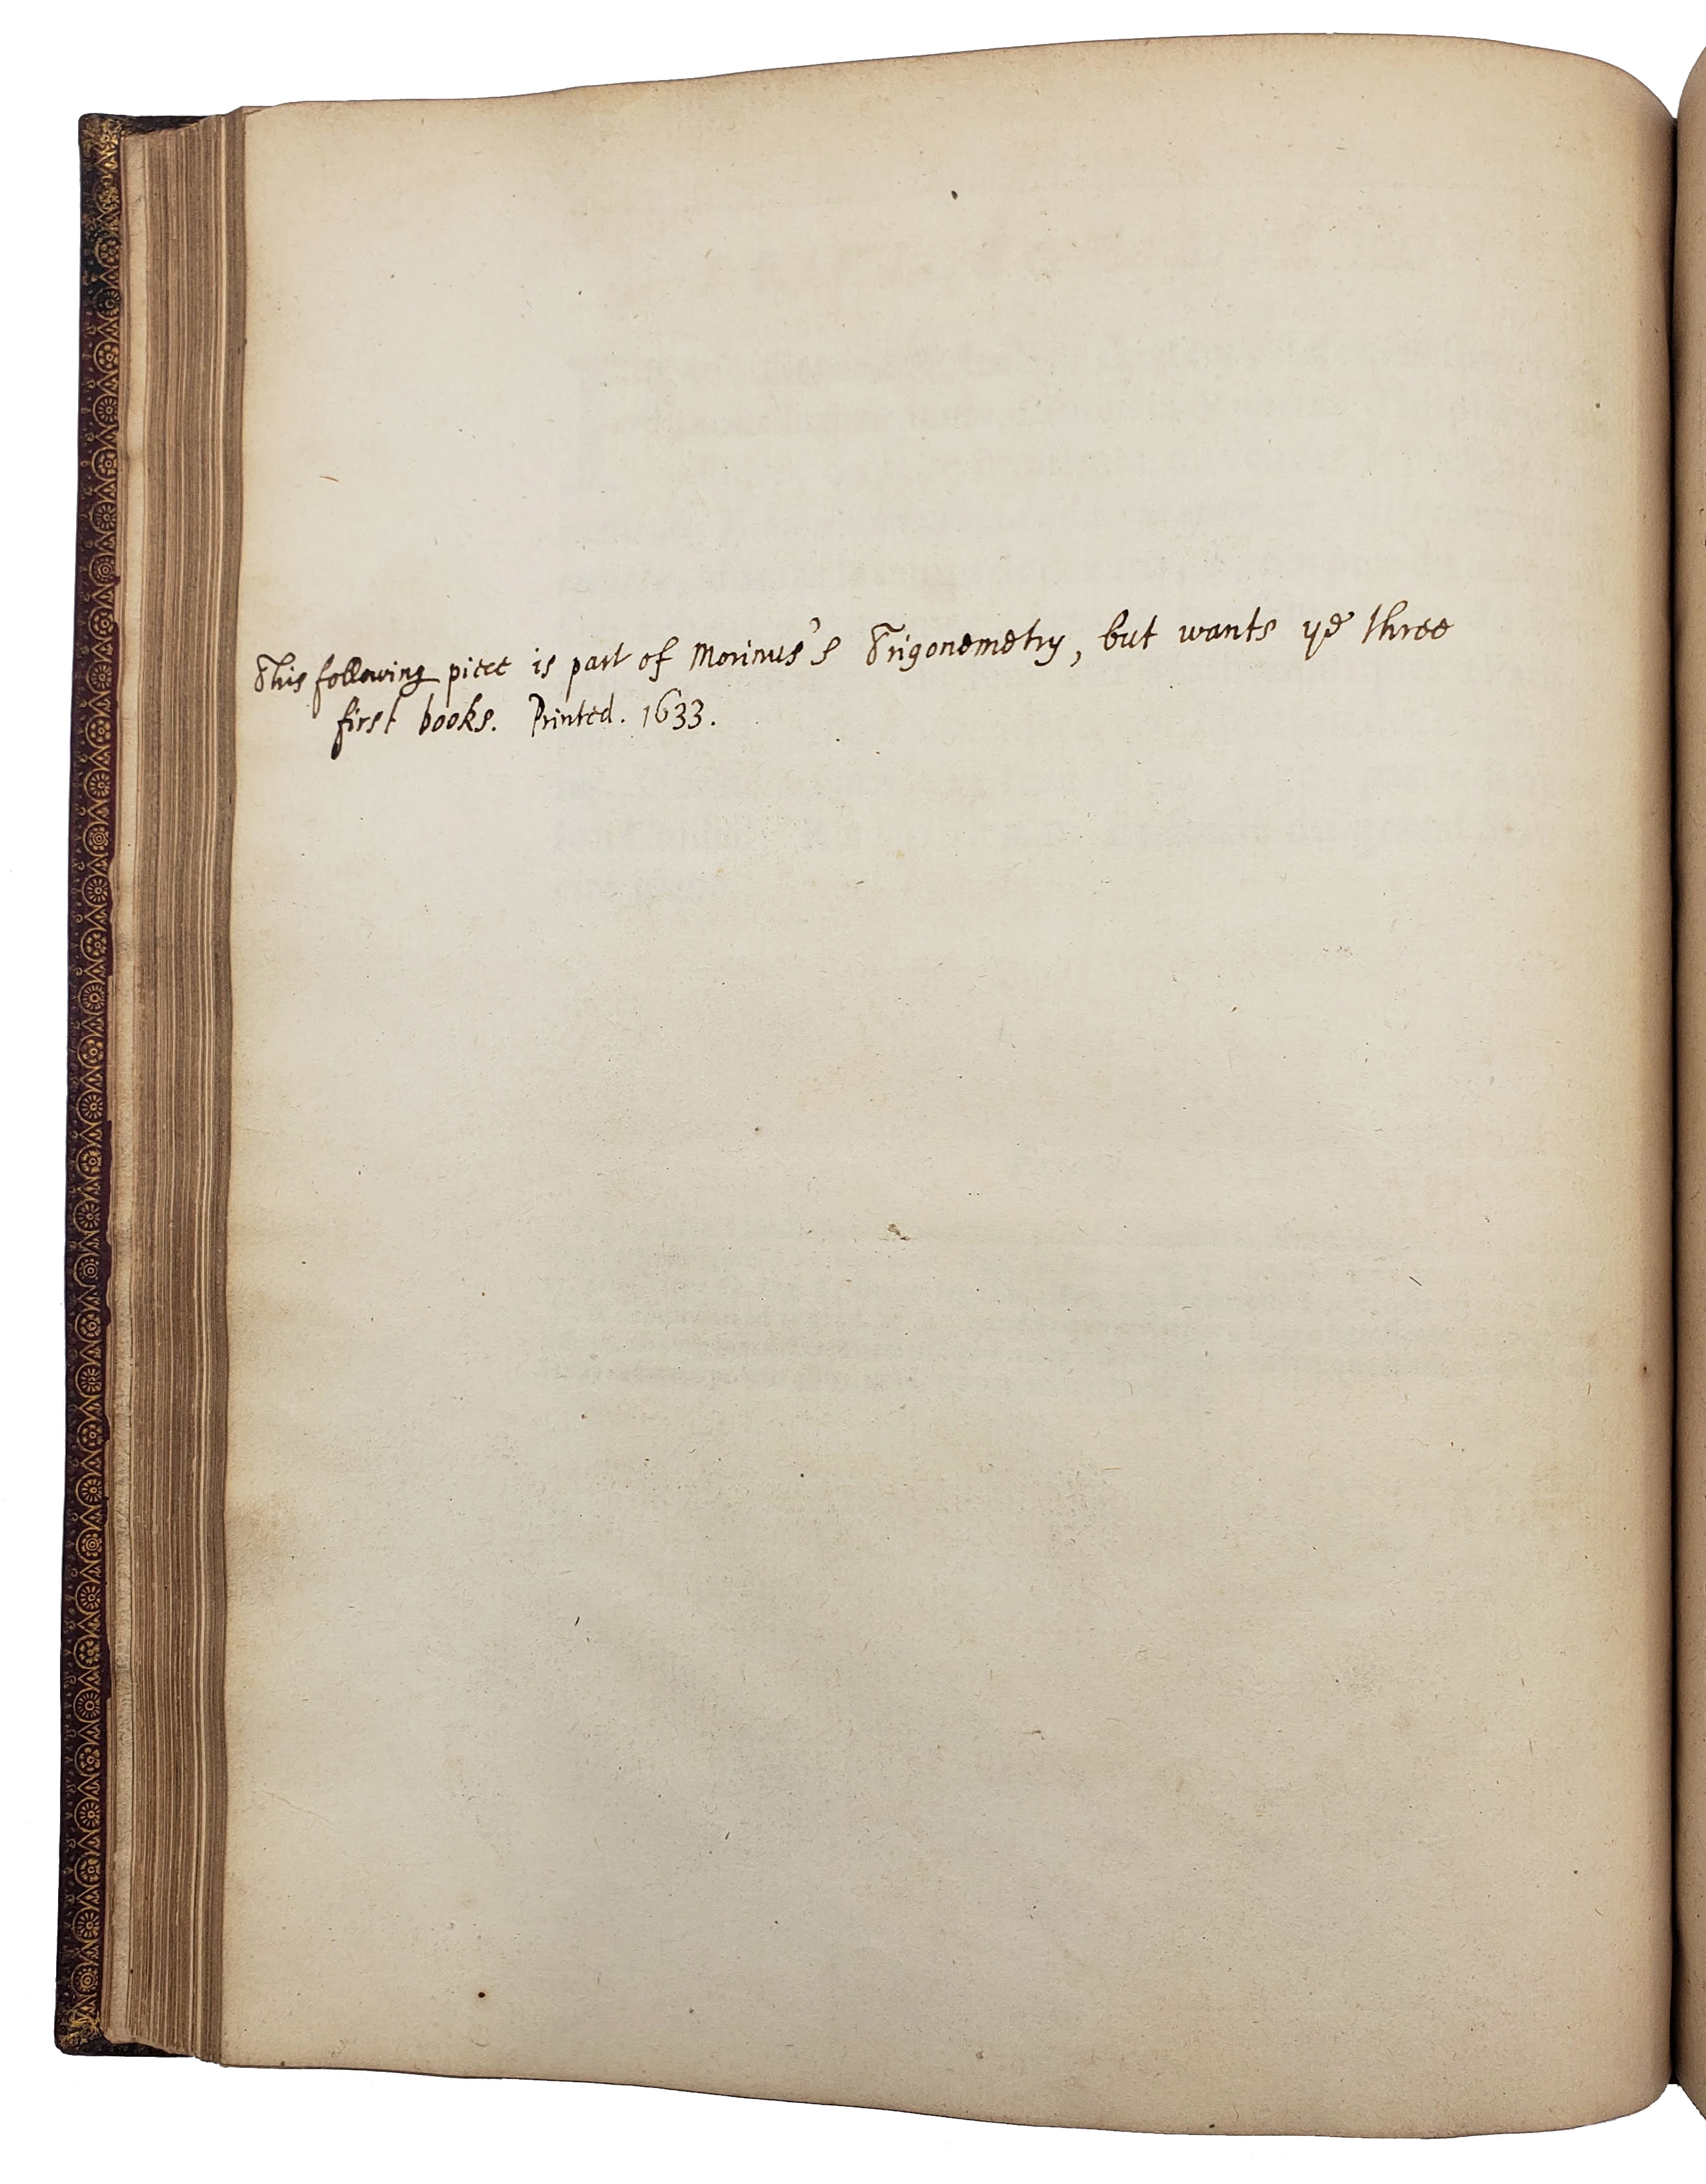 This following piece is part of Morinus's Trigonometry, but wants ye three
first books. Printed. 1633.